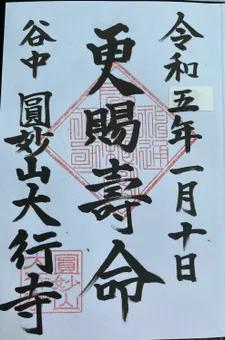 令和五年一月十日
更賜壽命
谷中 圓妙山大行寺
圓妙山